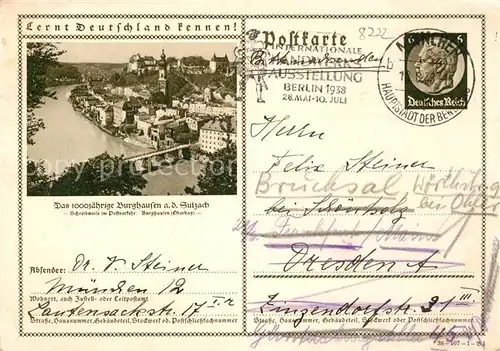 Lernt Deutschland kennen!
Das 1000jährige Burghausen a.d. Salzach
Schreibweise im Postverkehr: Burghausen (Oberbay)
Absender: Dr. V. Steiner
München 12
Wohnort, auch Zustell- oder Leitpostamt
Lautensackstr. 17 I. r.
Straße, Hausnummer, Gebäudeteil, Stockwerk od. Postschließfachnummer
8222
Postkarte
INTERNATIONALE
AUSSTELLUNG
BERLIN 1938
28. MAI-10. JULI
MÜNCHEN
HAUPTSTADT DER BEWEGUNG
6
Deutsches Reich
Herrn
Felix Steiner
Bruchsal
bei
Frankfurt
Dresden A
Zinzendorfstr. III
Straße, Hausnummer, Gebäudeteil, Stockwerk oder Postschließfachnummer